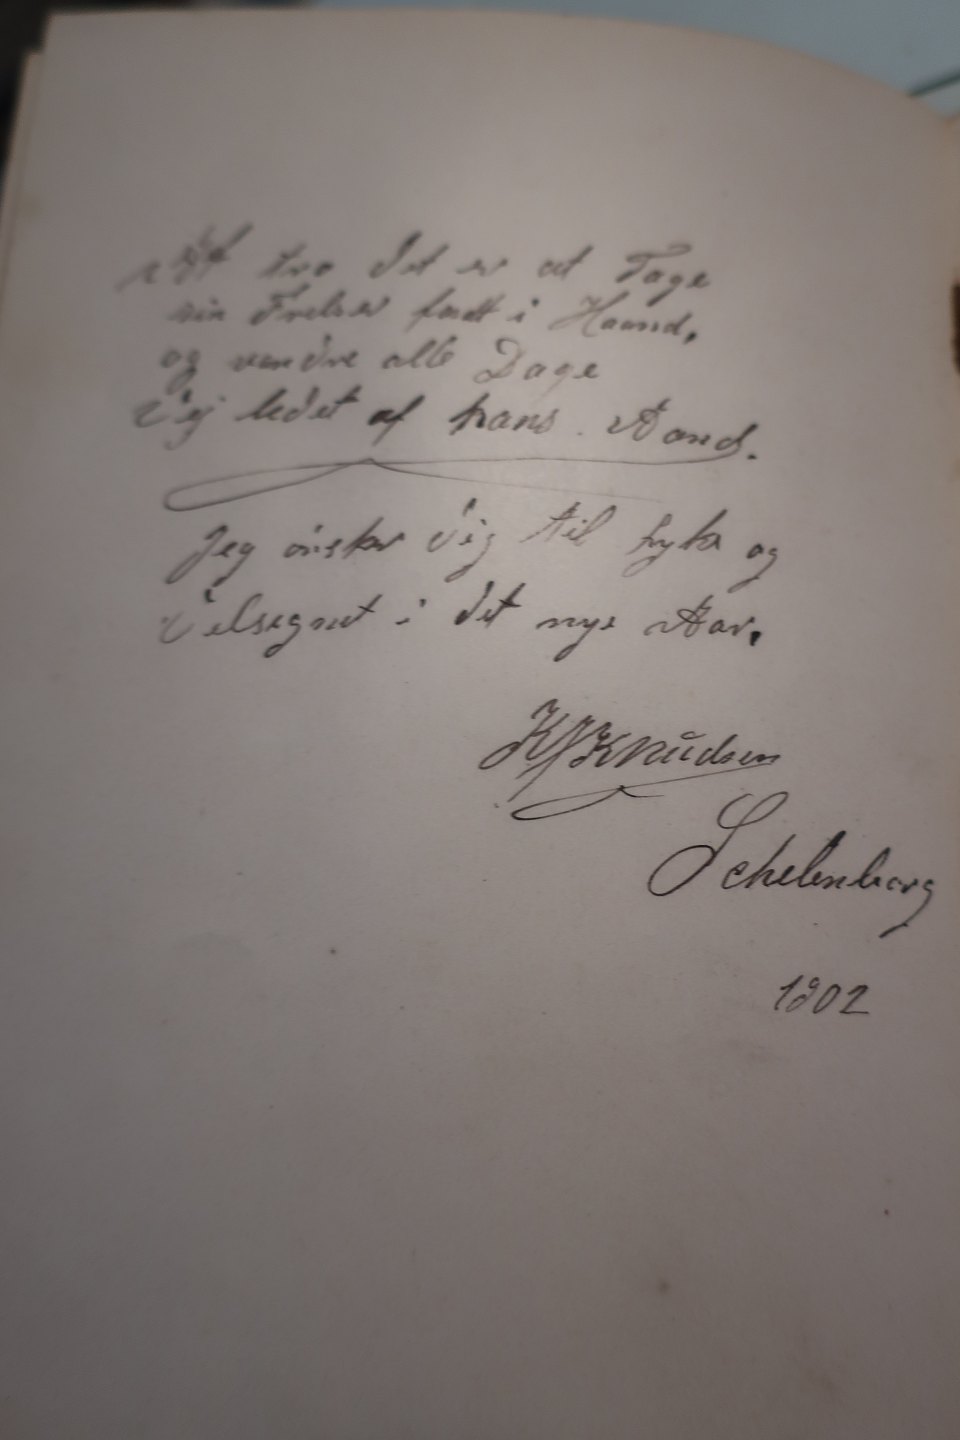 At tro det er at Tage
sin Frelser fadt i Haand,
og vandre alle Dage
Vej ledet af hans Aand.
Jeg ønsker dig til Lyke og
Velsegnet i det nye Aar.
K J Knudsen
Schelenborg
1902